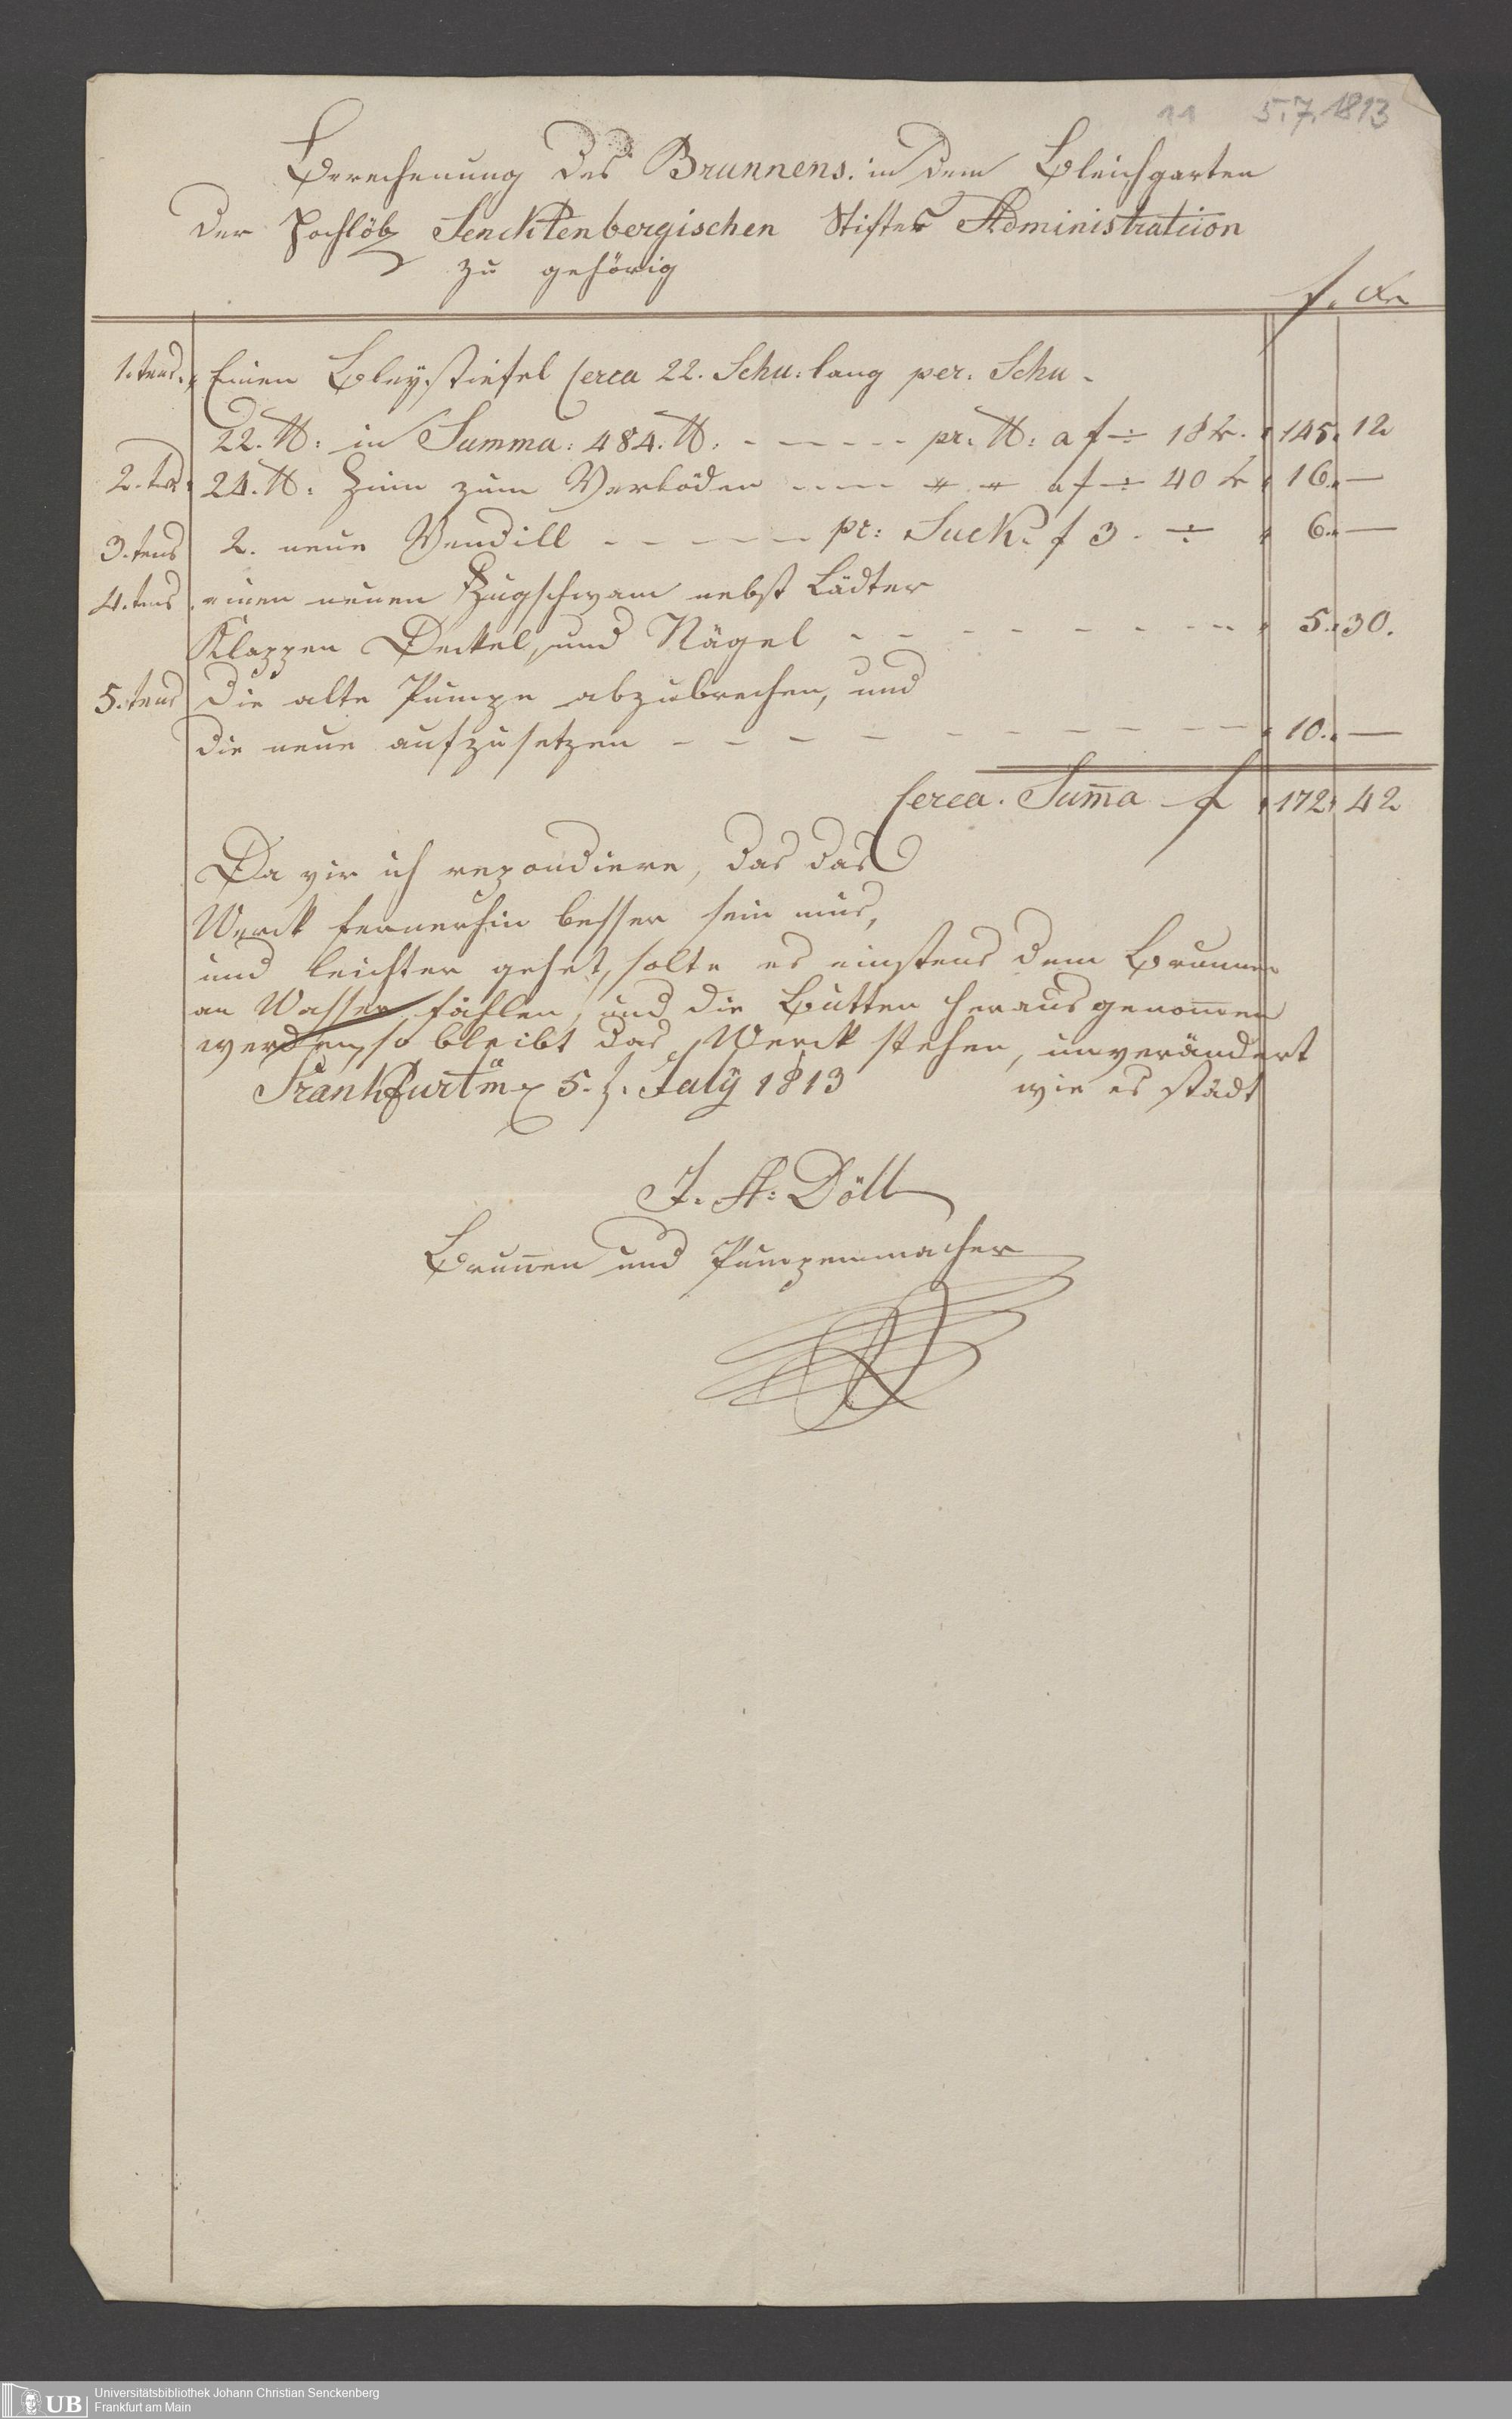 11 5.7.1813
Berechnung des Brunnens. in dem Bleichgarten
der Hochlöb Sencktenbergischen Stifter Administration
zu gehörig
f. Xr
1.tens. Einen Bley:stiefel Cerca 22. Schu: lang per: Schu -
22. ℔: in Summa: 484. ℔: - - - - - - pr. ℔: a f ÷ 18 Xr. 145. 12
2.tes 24. ℔: Zinn zum Verlöden - - - - " " a f ÷ 40 Xr 16. —
3.tens 2. neue Vendill - - - - - pr: Stück. f 3. ÷ 6. —
4.tens einen neuen Zugschwam nebst Lädter
Klappen Deckel, und Nägel - - - - - - - - 5. 30.
5.tens die alte Pumpe abzubrechen, und
die neue aufzusetzen - - - - - - - - - 10. —
Cerca. Sum̄a f 172. 42
Da vir ich repondiere, das das
Werck fernerhin besser sein mus,
und leichter gehet, solte es einstens dem Brunnen
an Wasser fählen, und die Bütten herausgenom̄en
werden, so bleibt das Werck stehen, unverändert
Frankfurt a/m 5. J. July 1813 wie es städt
J. A: Döll
Brun̄en und Pumpenmacher
UB Universitätsbibliothek Johann Christian Senckenberg
Frankfurt am Main